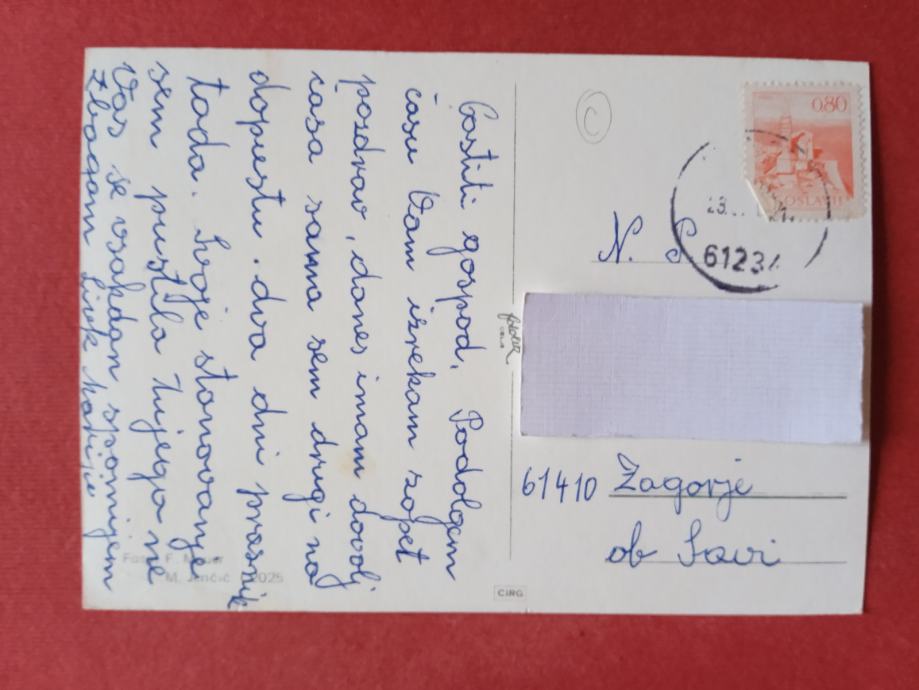 Častiti gospod. Podolgem
času Vam izrekam zopet
pozdrav, danes imam dovolj
časa sama sem drugi na
dopustu. dva dni praznik
tada. Svoje stanovanje
sem pustila tujega ne
Vas se vsakdan spomnjem
Zbogam
Foto: F.
M. Jenčič 2025
CIRG
0,80
JUGOSLAVIJA
N. S.
61410 Zagorje
ob Savi